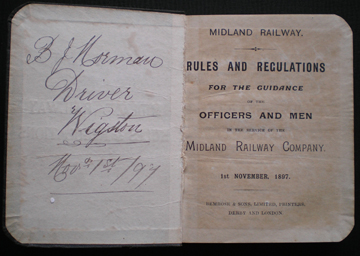 B J Norman
Driver
Wigston
Nov 1st /97
MIDLAND RAILWAY.
RULES AND REGULATIONS
FOR THE GUIDANCE
OF THE
OFFICERS AND MEN
IN THE SERVICE OF THE
MIDLAND RAILWAY COMPANY.
1st NOVEMBER, 1897.
BEMROSE & SONS, LIMITED, PRINTERS,
DERBY AND LONDON.